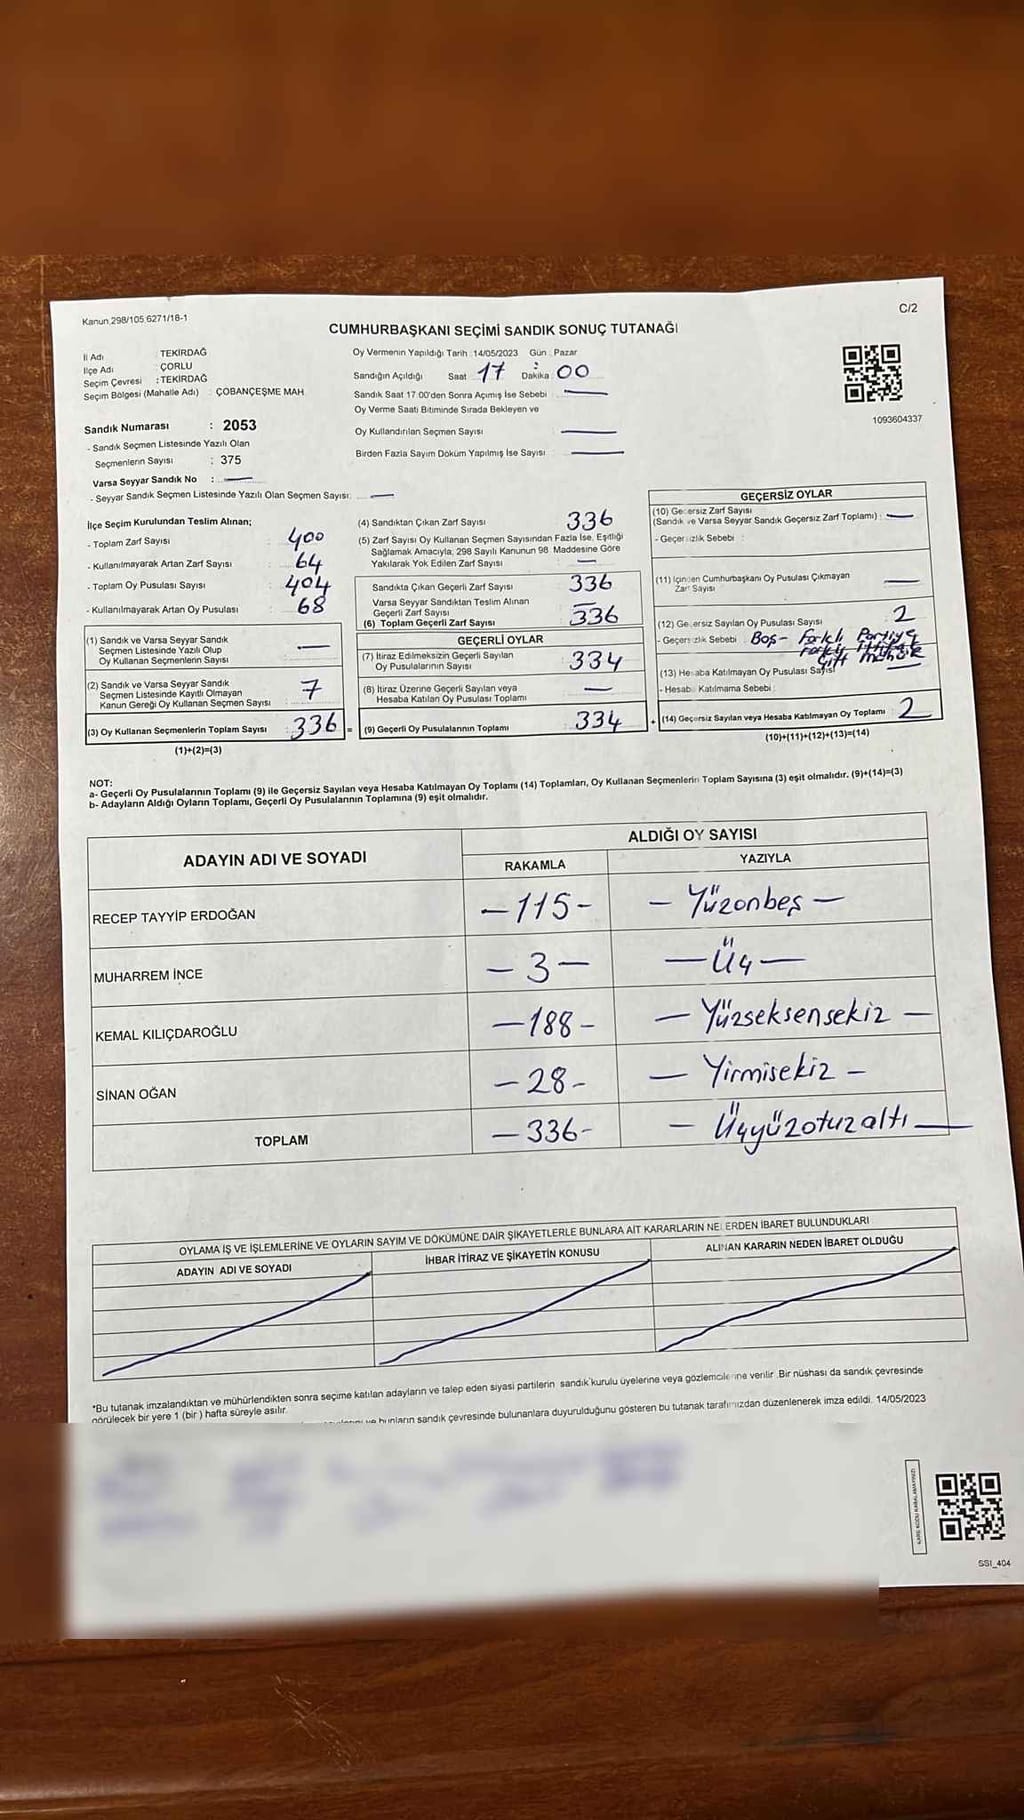 Kanun 298/105,6271/18-1
C/2
CUMHURBAŞKANI SEÇİMİ SANDIK SONUÇ TUTANAĞI
İl Adı : TEKİRDAĞ
İlçe Adı : ÇORLU
Seçim Çevresi : TEKİRDAĞ
Seçim Bölgesi (Mahalle Adı) : ÇOBANÇEŞME MAH
Sandık Numarası : 2053
- Sandık Seçmen Listesinde Yazılı Olan
Seçmenlerin Sayısı : 375
Varsa Seyyar Sandık No : —
- Seyyar Sandık Seçmen Listesinde Yazılı Olan Seçmen Sayısı: —
Oy Vermenin Yapıldığı Tarih :14/05/2023 Gün : Pazar
Sandığın Açıldığı Saat 17 Dakika : 00
Sandık Saat 17.00'den Sonra Açımış İse Sebebi : —
Oy Verme Saati Bitiminde Sırada Bekleyen ve
Oy Kullandırılan Seçmen Sayısı : —
Birden Fazla Sayım Döküm Yapılmış İse Sayısı : —
1093604337
İlçe Seçim Kurulundan Teslim Alınan;
- Toplam Zarf Sayısı : 400
- Kullanılmayarak Artan Zarf Sayısı : 64
- Toplam Oy Pusulası Sayısı : 404
- Kullanılmayarak Artan Oy Pusulası : 68
(1) Sandık ve Varsa Seyyar Sandık
Seçmen Listesinde Yazılı Olup
Oy Kullanan Seçmenlerin Sayısı : —
(2) Sandık ve Varsa Seyyar Sandık
Seçmen Listesinde Kayıtlı Olmayan
Kanun Gereği Oy Kullanan Seçmen Sayısı : 7
(3) Oy Kullanan Seçmenlerin Toplam Sayısı : 336 =
(1)+(2)=(3)
(4) Sandıktan Çıkan Zarf Sayısı : 336
(5) Zarf Sayısı Oy Kullanan Seçmen Sayısından Fazla İse, Eşitliği
Sağlamak Amacıyla, 298 Sayılı Kanunun 98. Maddesine Göre
Yakılarak Yok Edilen Zarf Sayısı : —
Sandıkta Çıkan Geçerli Zarf Sayısı : 336
Varsa Seyyar Sandıktan Teslim Alınan
Geçerli Zarf Sayısı : —
(6) Toplam Geçerli Zarf Sayısı : 336
GEÇERLİ OYLAR
(7) İtiraz Edilmeksizin Geçerli Sayılan
Oy Pusulalarının Sayısı : 334
(8) İtiraz Üzerine Geçerli Sayılan veya
Hesaba Katılan Oy Pusulası Toplamı : —
(9) Geçerli Oy Pusulalarının Toplamı : 334 +
GEÇERSİZ OYLAR
(10) Geçersiz Zarf Sayısı
(Sandık ve Varsa Seyyar Sandık Geçersiz Zarf Toplamı) : —
- Geçersizlik Sebebi :
(11) İçinden Cumhurbaşkanı Oy Pusulası Çıkmayan
Zarf Sayısı : —
(12) Geçersiz Sayılan Oy Pusulası Sayısı : 2
- Geçersizlik Sebebi : Boş- Farklı Partiye
Çift Mühür
(13) Hesaba Katılmayan Oy Pusulası Sayısı : —
- Hesaba Katılmama Sebebi :
(14) Geçersiz Sayılan veya Hesaba Katılmayan Oy Toplamı : 2
(10)+(11)+(12)+(13)=(14)
NOT:
a- Geçerli Oy Pusulalarının Toplamı (9) ile Geçersiz Sayılan veya Hesaba Katılmayan Oy Toplamı (14) Toplamları, Oy Kullanan Seçmenlerin Toplam Sayısına (3) eşit olmalıdır. (9)+(14)=(3)
b- Adayların Aldığı Oyların Toplamı, Geçerli Oy Pusulalarının Toplamına (9) eşit olmalıdır.
ADAYIN ADI VE SOYADI
ALDIĞI OY SAYISI
RAKAMLA YAZIYLA
RECEP TAYYİP ERDOĞAN —115— —Yüzonbeş—
MUHARREM İNCE —3— —Üç—
KEMAL KILIÇDAROĞLU —188— —Yüzseksensekiz—
SİNAN OĞAN —28— —Yirmisekiz—
TOPLAM —336— —Üçyüzotuzaltı—
OYLAMA İŞ VE İŞLEMLERİNE VE OYLARIN SAYIM VE DÖKÜMÜNE DAİR ŞİKAYETLERLE BUNLARA AİT KARARLARIN NELERDEN İBARET BULUNDUKLARI
ADAYIN ADI VE SOYADI
İHBAR İTİRAZ VE ŞİKAYETİN KONUSU
ALINAN KARARIN NEDEN İBARET OLDUĞU
*Bu tutanak imzalandıktan ve mühürlendikten sonra seçime katılan adayların ve talep eden siyasi partilerin sandık kurulu üyelerine veya gözlemcilerine verilir. Bir nüshası da sandık çevresinde
görülecek bir yere 1 (bir ) hafta süreyle asılır.
ve bunların sandık çevresinde bulunanlara duyurulduğunu gösteren bu tutanak tarafımızdan düzenlenerek imza edildi. 14/05/2023
KARE KODU KARALAMAYINIZ!
SSI_404